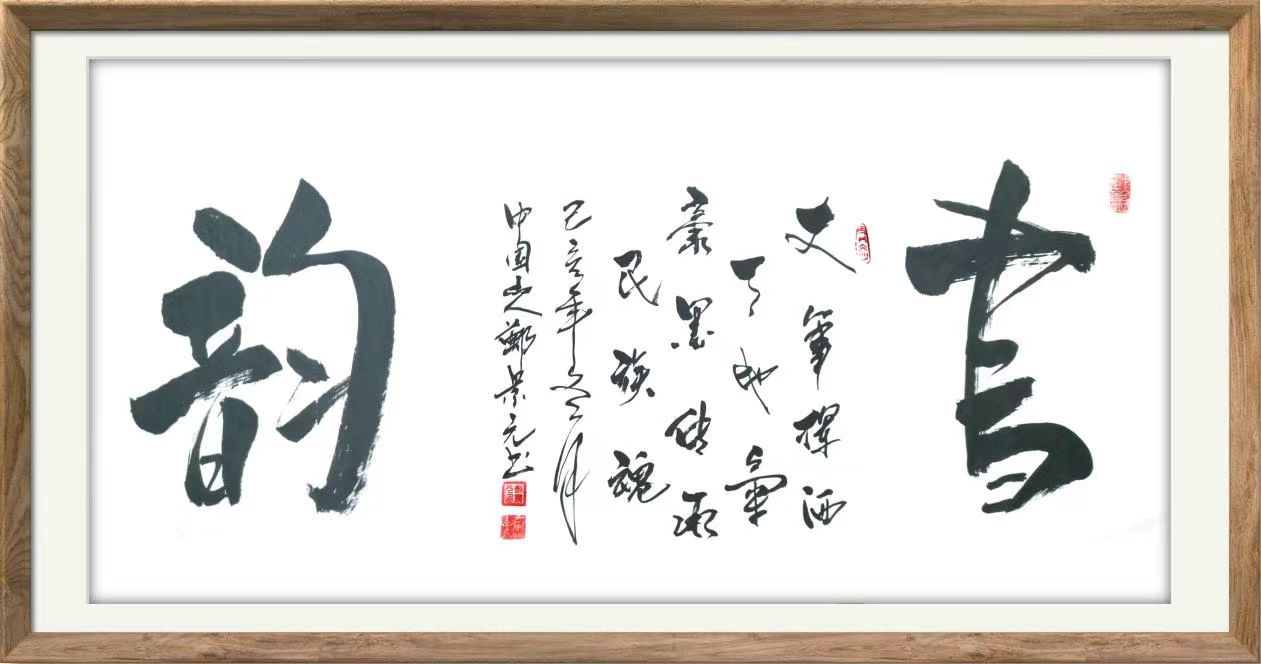 書
文筆揮洒
天地氣
豪墨傳承
民族魂
己亥年冬月
中国山人鄭景元书
韵